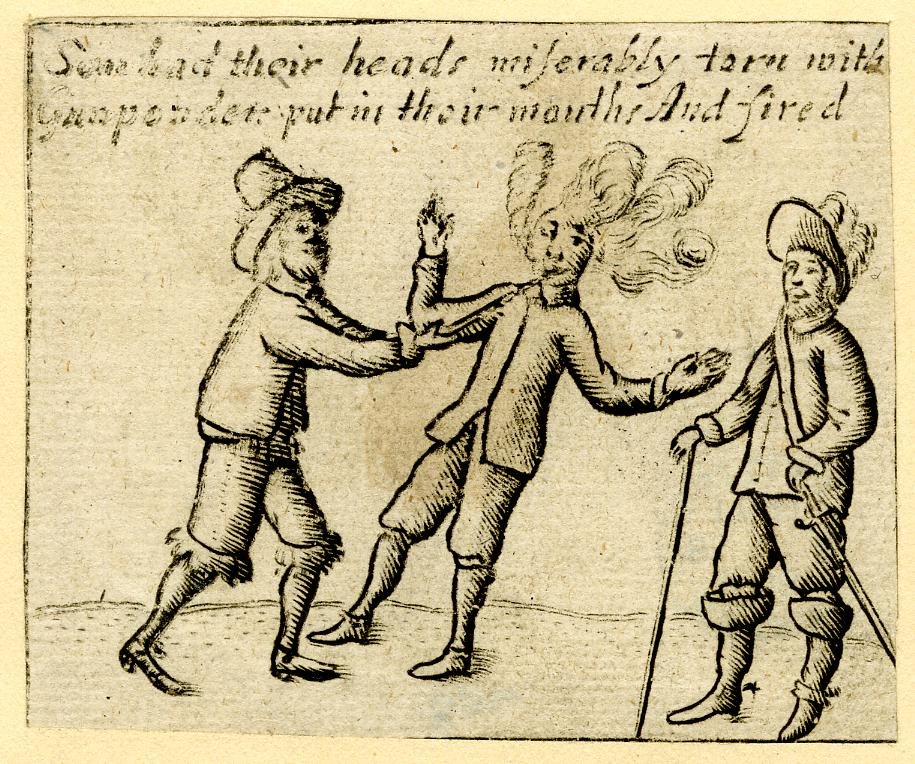 Som had their heads miſerably torn with
Gunpowder put in their mouths And fired